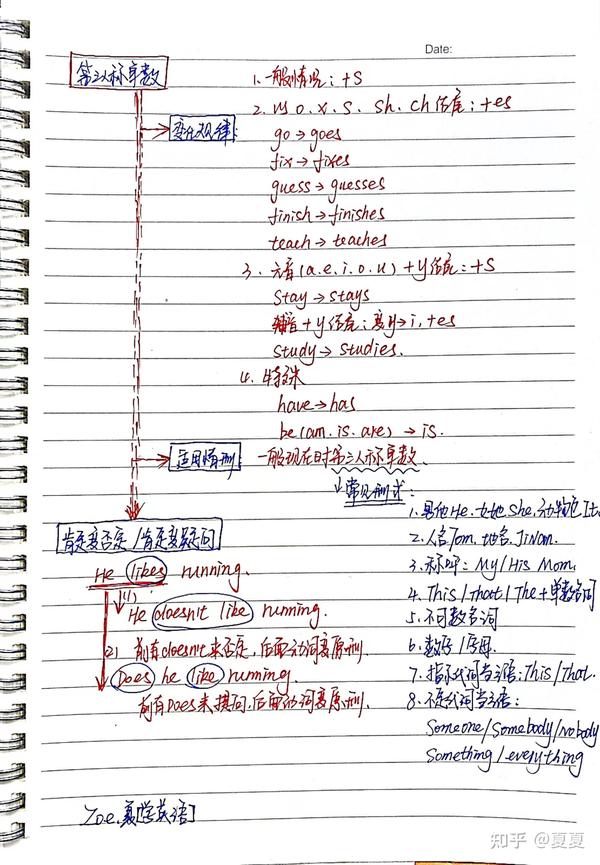 Date:
第三人称单数
变化规律:
1. 一般情况: +S
2. 以 o. x. s. sh. ch 结尾: +es
go → goes
fix → fixes
guess → guesses
finish → finishes
teach → teaches
3. 元音(a.e.i.o.u) + y结尾: +S
stay → stays
辅音 + y结尾: 变y→i, +es
study → studies.
4. 特殊
have → has
be(am. is. are) → is.
适用情刑
一般现在时第三人称单数.
常见刑式:
1. 男他He. 女她She. 动物它It.
2. 人名Tom. 地名. JiNan.
3. 称呼: My/His Mom.
4. This/That/The+单数名词
5. 不可数名词
6. 数字/字母.
7. 指示代词当主语: This/That.
8. 不定代词当主语:
Someone/Somebody/nobody
Something/everything
肯定变否定/肯定变疑问
He likes running.
(1)
He doesn't like running.
前有doesn't来否定, 后面动词要原刑.
2)
Does he like running.
前有Does来提问, 后面动词要原刑.
Zoe.夏学英语
知乎 @夏夏